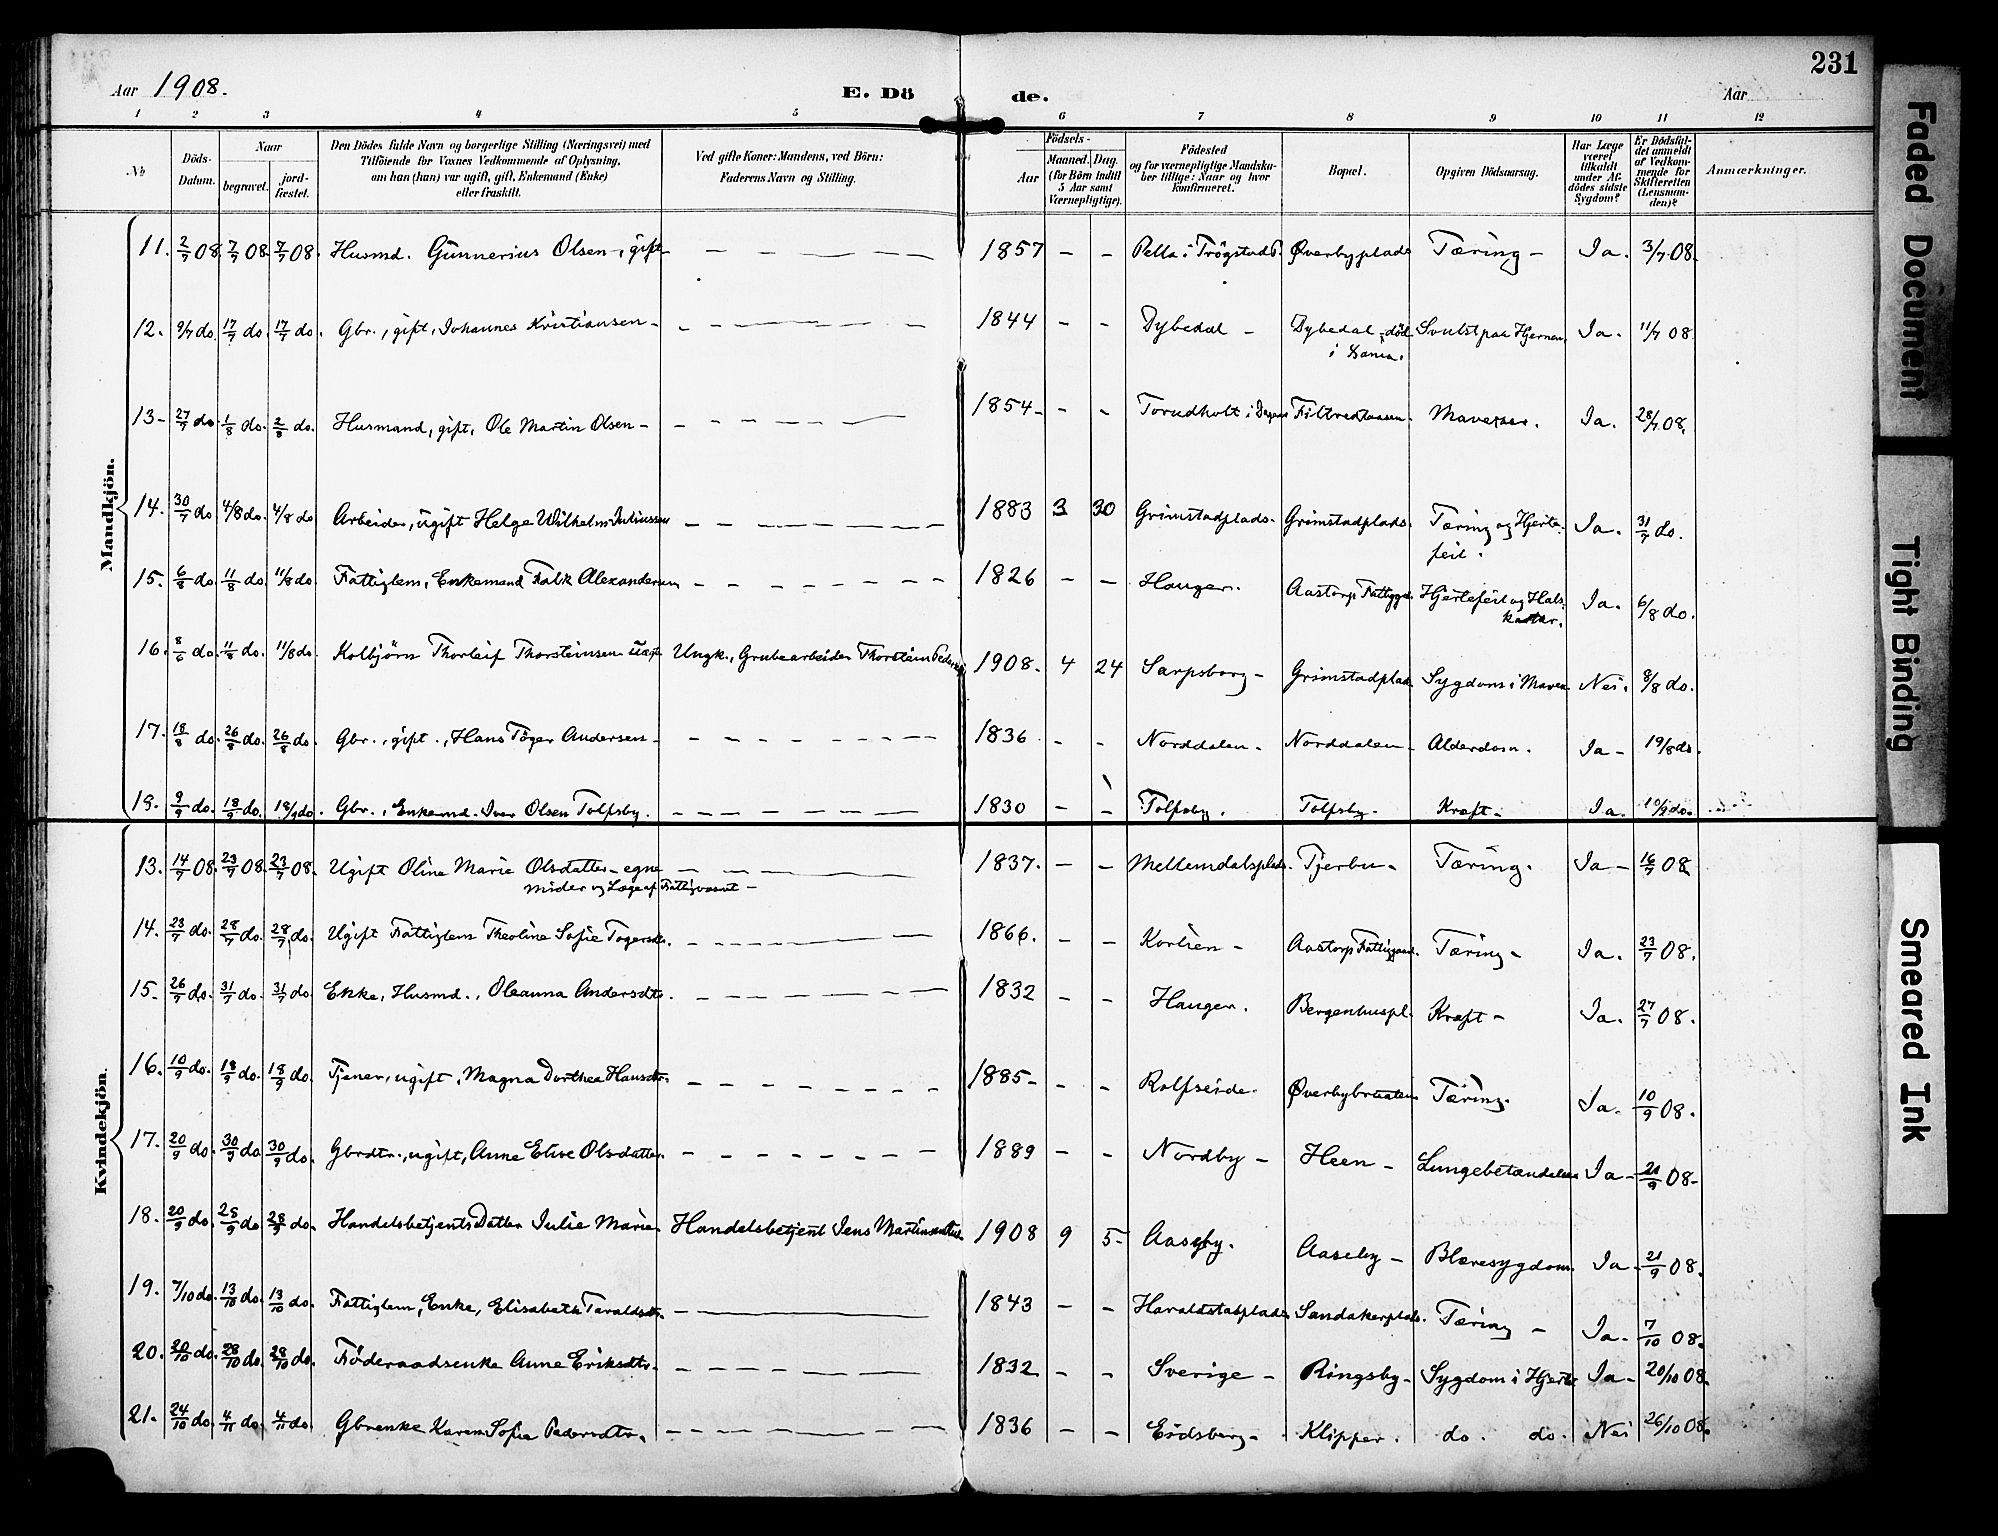 231
Aar 1908. E. Dö de. Aar
1 2 3 4 5 6 7 8 9 10 11 12
No
Döds-Datum.
Naar
begravet.
jord-fæstet.
Den Dödes fulde Navn og borgerlige Stilling (Næringsvei) med
Tilföiende for Voxnes Vedkommende af Oplysning,
om han (hun) var ugift, gift, Enkemand (Enke)
eller fraskilt.
Ved gifte Koner: Mandens, ved Börn:
Faderens Navn og Stilling.
Födsels-
Aar
Maaned. Dag.
(for Börn indtil
5 Aar samt
Værnepligtige).
Födested
og for værnepligtige Mandska-
ber tillige: Naar og hvor
konfirmeret.
Bopæl.
Opgiven Dödsaarsag.
Har Læge
været
tilkaldt
under Af-
dödes sidste
Sygdom?
Er Dödsfal-
det anmeldt
af Vedkom-
mende for
Skifteretten
(Lensman-
den)?
Anmærkninger.
Mandkjön.
11. 2/7 08. 7/7 08. 7/7 08. Husmd. Gunnerius Olsen, gift - 1857 - - Pella i Trögstad P. Øverbyplads Tæring - Ja. 3/7 08.
12. 9/7 do. 17/7 do. 17/7 do. Gbr., gift, Johannes Kristiansen - 1844 - - Dybedal - Dybedal, död Svulst paa Hjernen Ja. 11/7 08.
13- 27/7 do. 1/8 do. 2/8 do. Husmand, gift, Ole Martin Olsen - 1854 - - - Torudholt i Maveker. Ja. 28/7 08.
14. 30/7 do. 4/8 do. 4/8 do Arbeider, ugift Helge Wilhelm Juliussen 1883 3 30 Grimstadplads. Grimstadplads. Tæring og Hjerte-
feil. Ja. 31/7 do.
15. 6/8 do. 11/8 do 11/8 do Fattiglem, Enkemand Falk Alexandersen 1826 - - Hauger. Aastorp Fattiggd. Hjertefeil og Hals-
katar. Ja. 6/8 do.
16. 8/6 do. 11/8 do. 11/8 do. Kolbjörn Thorleif Thorsteinsen Ungk., Grubearbeider Thorstein Pedersen 1908. 4 24 Sarpsborg - Grimstadplads Sygdom i Maven Nei. 8/8 do.
17. 18/8 do. 26/8 do. 26/8 do. Gbr., gift., Hans Töger Andersen - 1836 - - Norddalen - Norddalen - Alderdom. Ja - 19/8 do.
18. 9/9 do. 18/9 do. 18/9 do. Gbr., Enkemd. Iver Olsen Tolfsby. 1830 - - Tolfsby. Tolfsby. Kræft - Ja. 10/9 do.
Kvindekjön.
13. 14/7 08. 23/7 08. 23/7 08. Ugift Oline Marie Olsdatter - egne
midler og Læge af Fattigvæsnet - 1837. - - Mellemdalsplads. Tjerbu - Tæring. Ja - 16/7 08.
14. 23/7 do. 28/7 do. 28/7 do. Ugift Fattiglem Theoline Sofie Togersdtr. 1866. - - Korlien - Aastorp Fattiggaard. Tæring - Ja. 23/7 08.
15. 26/7 do. 31/7 do. 31/7 do Enke, Husmd., Oleanna Andersdtr. 1832 - - Hauger. Bergenhuspl. Kræft - Ja. 27/7 08.
16. 10/9 do. 18/9 do. 18/9 do. Tjener, ugift, Magna Dorthea Hansdtr. 1885- - - Rolfseide. Øverbybraaten Tæring. Ja. 10/9 08.
17. 20/9 do. 30/9 do 30/9 do. Gbrdtr., ugift, Anne Elise Olsdatter. 1889 - - Nordby - Heen - Lungebetændelse Ja - 21/9 08-
18. 20/9 do. 28/9 do 28/9 do. Handelsbetjents Datter Julie Marie Handelsbetjent Jens 1908 9 5- Aaseby. Aaseby - Blæresygdom. Ja 21/9 08.
19. 7/10 do. 13/10 do. 13/10 do. Fattiglem, Enke, Elisabeth Taraldsdtr. 1843 - - Haraldstadplads Sandakerplads. Tæring - Ja. 7/10 08.
20. 20/10 do. 28/10 do. 28/10 do. Föderaadsenke Anne Eriksdtr. 1832 - - Sverige - Ringsby - Sygdom i Hjerte Ja - 20/10 08.
21. 24/10 do. 4/11 do. 4/11 do. Gbrenke Karen Sofie Pedersdtr. 1836 - - Eidsberg - Klipper. do. do. Nei 26/10 08.
Faded Document
Tight Binding
Smeared Ink